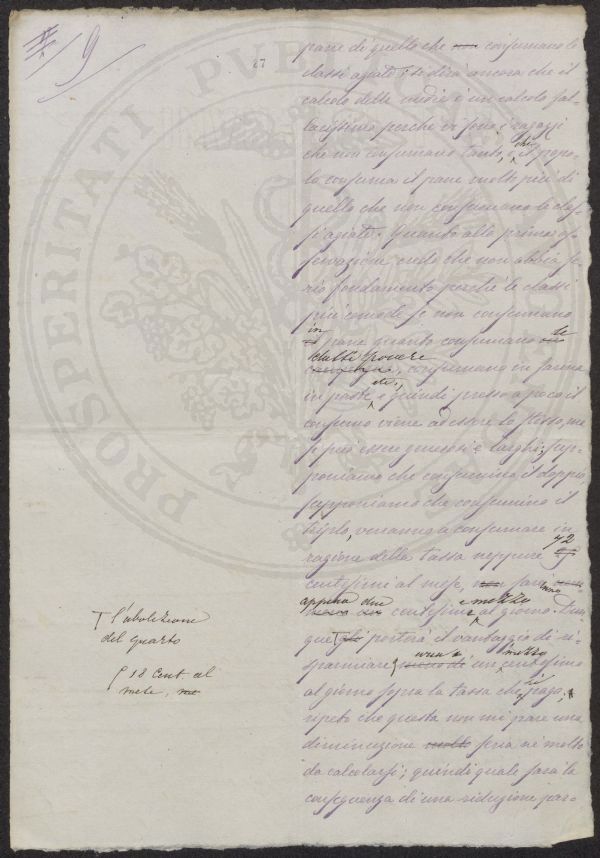 9
27
PROSPERITATI PVBLICAE
pane di quello che non consumano le
classi agiate; si dirà ancora che il
calcolo delle medie è un calcolo fal-
lacissimo perché vi sono i ragazzi
che non consumano tanto, che il popo-
lo consuma il pane molto più di
quello che non consumano le clas-
si agiate. Quanto alla prima os-
servazione credo che non abbia se-
rio fondamento perchè le classi
più comode se non consumano
in pane quanto consumano le
classi povere, consumano in farina
in paste etc., e quindi presso a poco il
consumo viene ad essere lo stesso, ma
si può essere generosi e larghi; sup-
poniamo che consumino il doppio,
supponiamo che consumino il
triplo, verranno a consumare in
ragione della tassa neppure 72
centesimi al mese, saranno
appena due centesimi e mezzo al giorno. Dun
que porterà il vantaggio di ri-
sparmiare un mezzo centesimo
al giorno sopra la tassa che si paga;
ripeto che questa non mi pare una
diminuzione molto seria nè molto
da calcolarsi; quindi quale sarà la
conseguenza di una riduzione par-
l'abolizione
del quarto
18 Cent. al
mese,